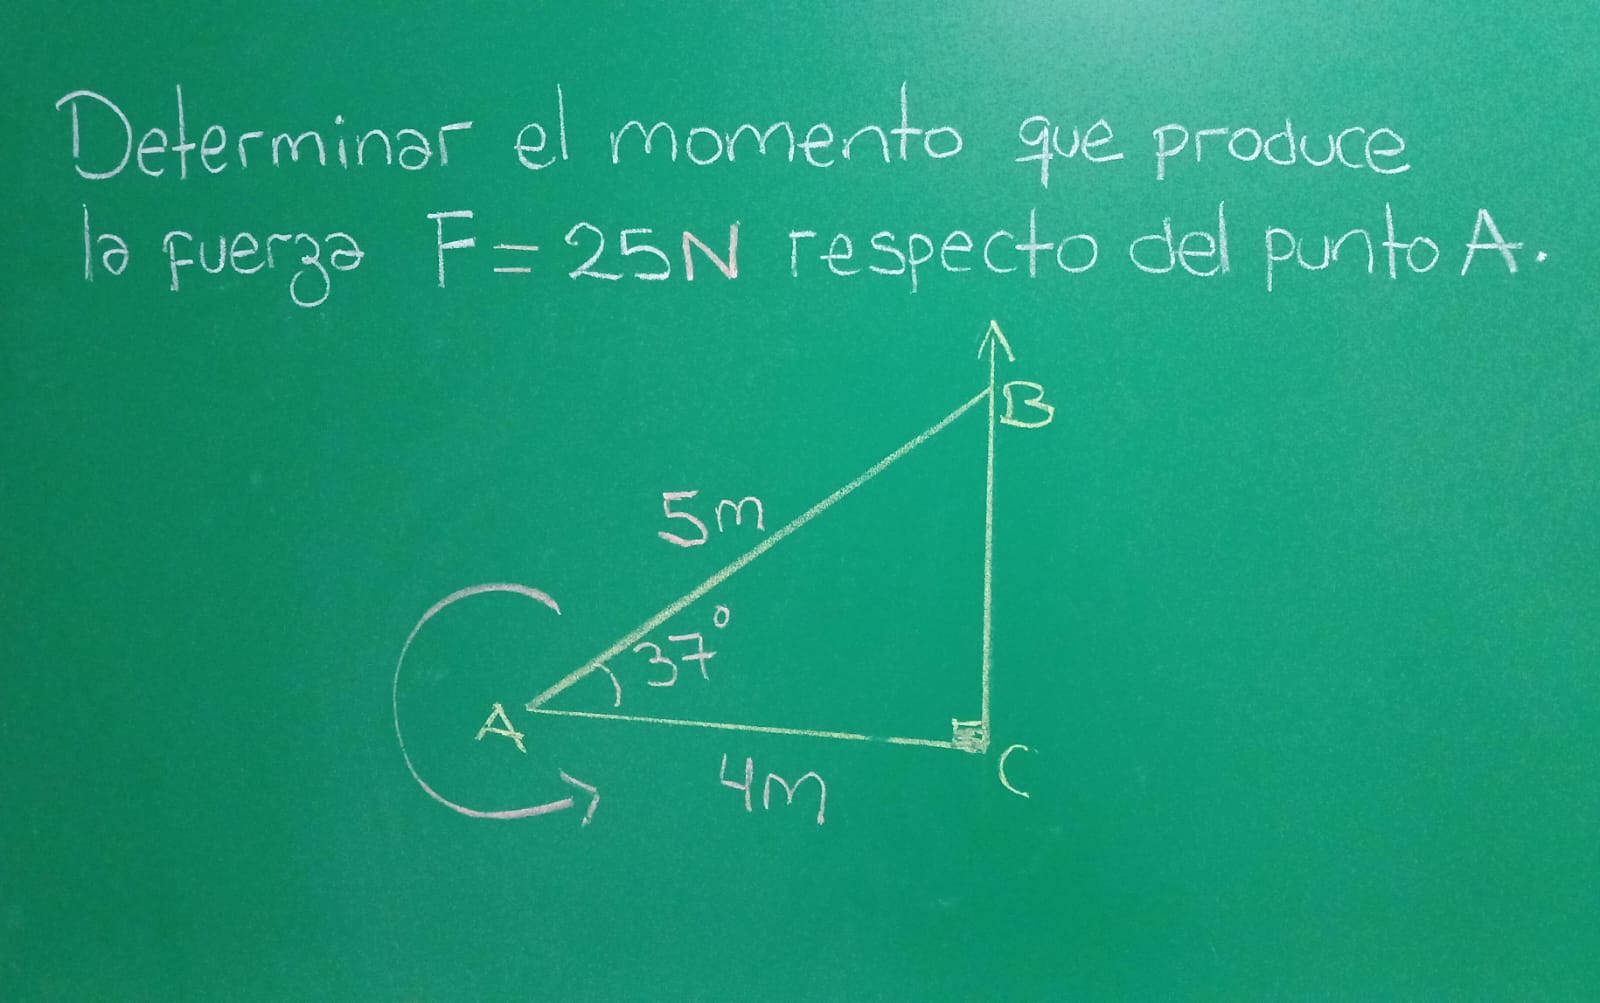 Determinar el momento que produce
la fuerza F = 25N respecto del punto A.
B
5m
37°
A
4m
C